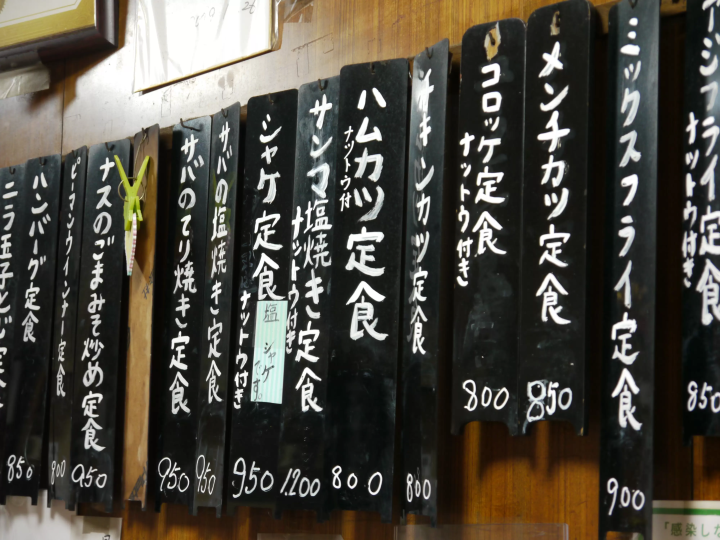 アジフライ定食
ナットウ付き
850
ミックスフライ定食
900
メンチカツ定食
850
コロッケ定食
ナットウ付き
800
チキンカツ定食
800
ハムカツ定食
ナットウ付
800
サンマ塩焼き定食
ナットウ付き
1200
シャケ定食
ナットウ付き
塩シャケです。
950
サバの塩焼き定食
950
サバのてり焼き定食
950
ナスのごまみそ炒め定食
950
ピーマンウインナー定食
800
ハンバーグ定食
850
ニラ玉子とじ定
「感染しな